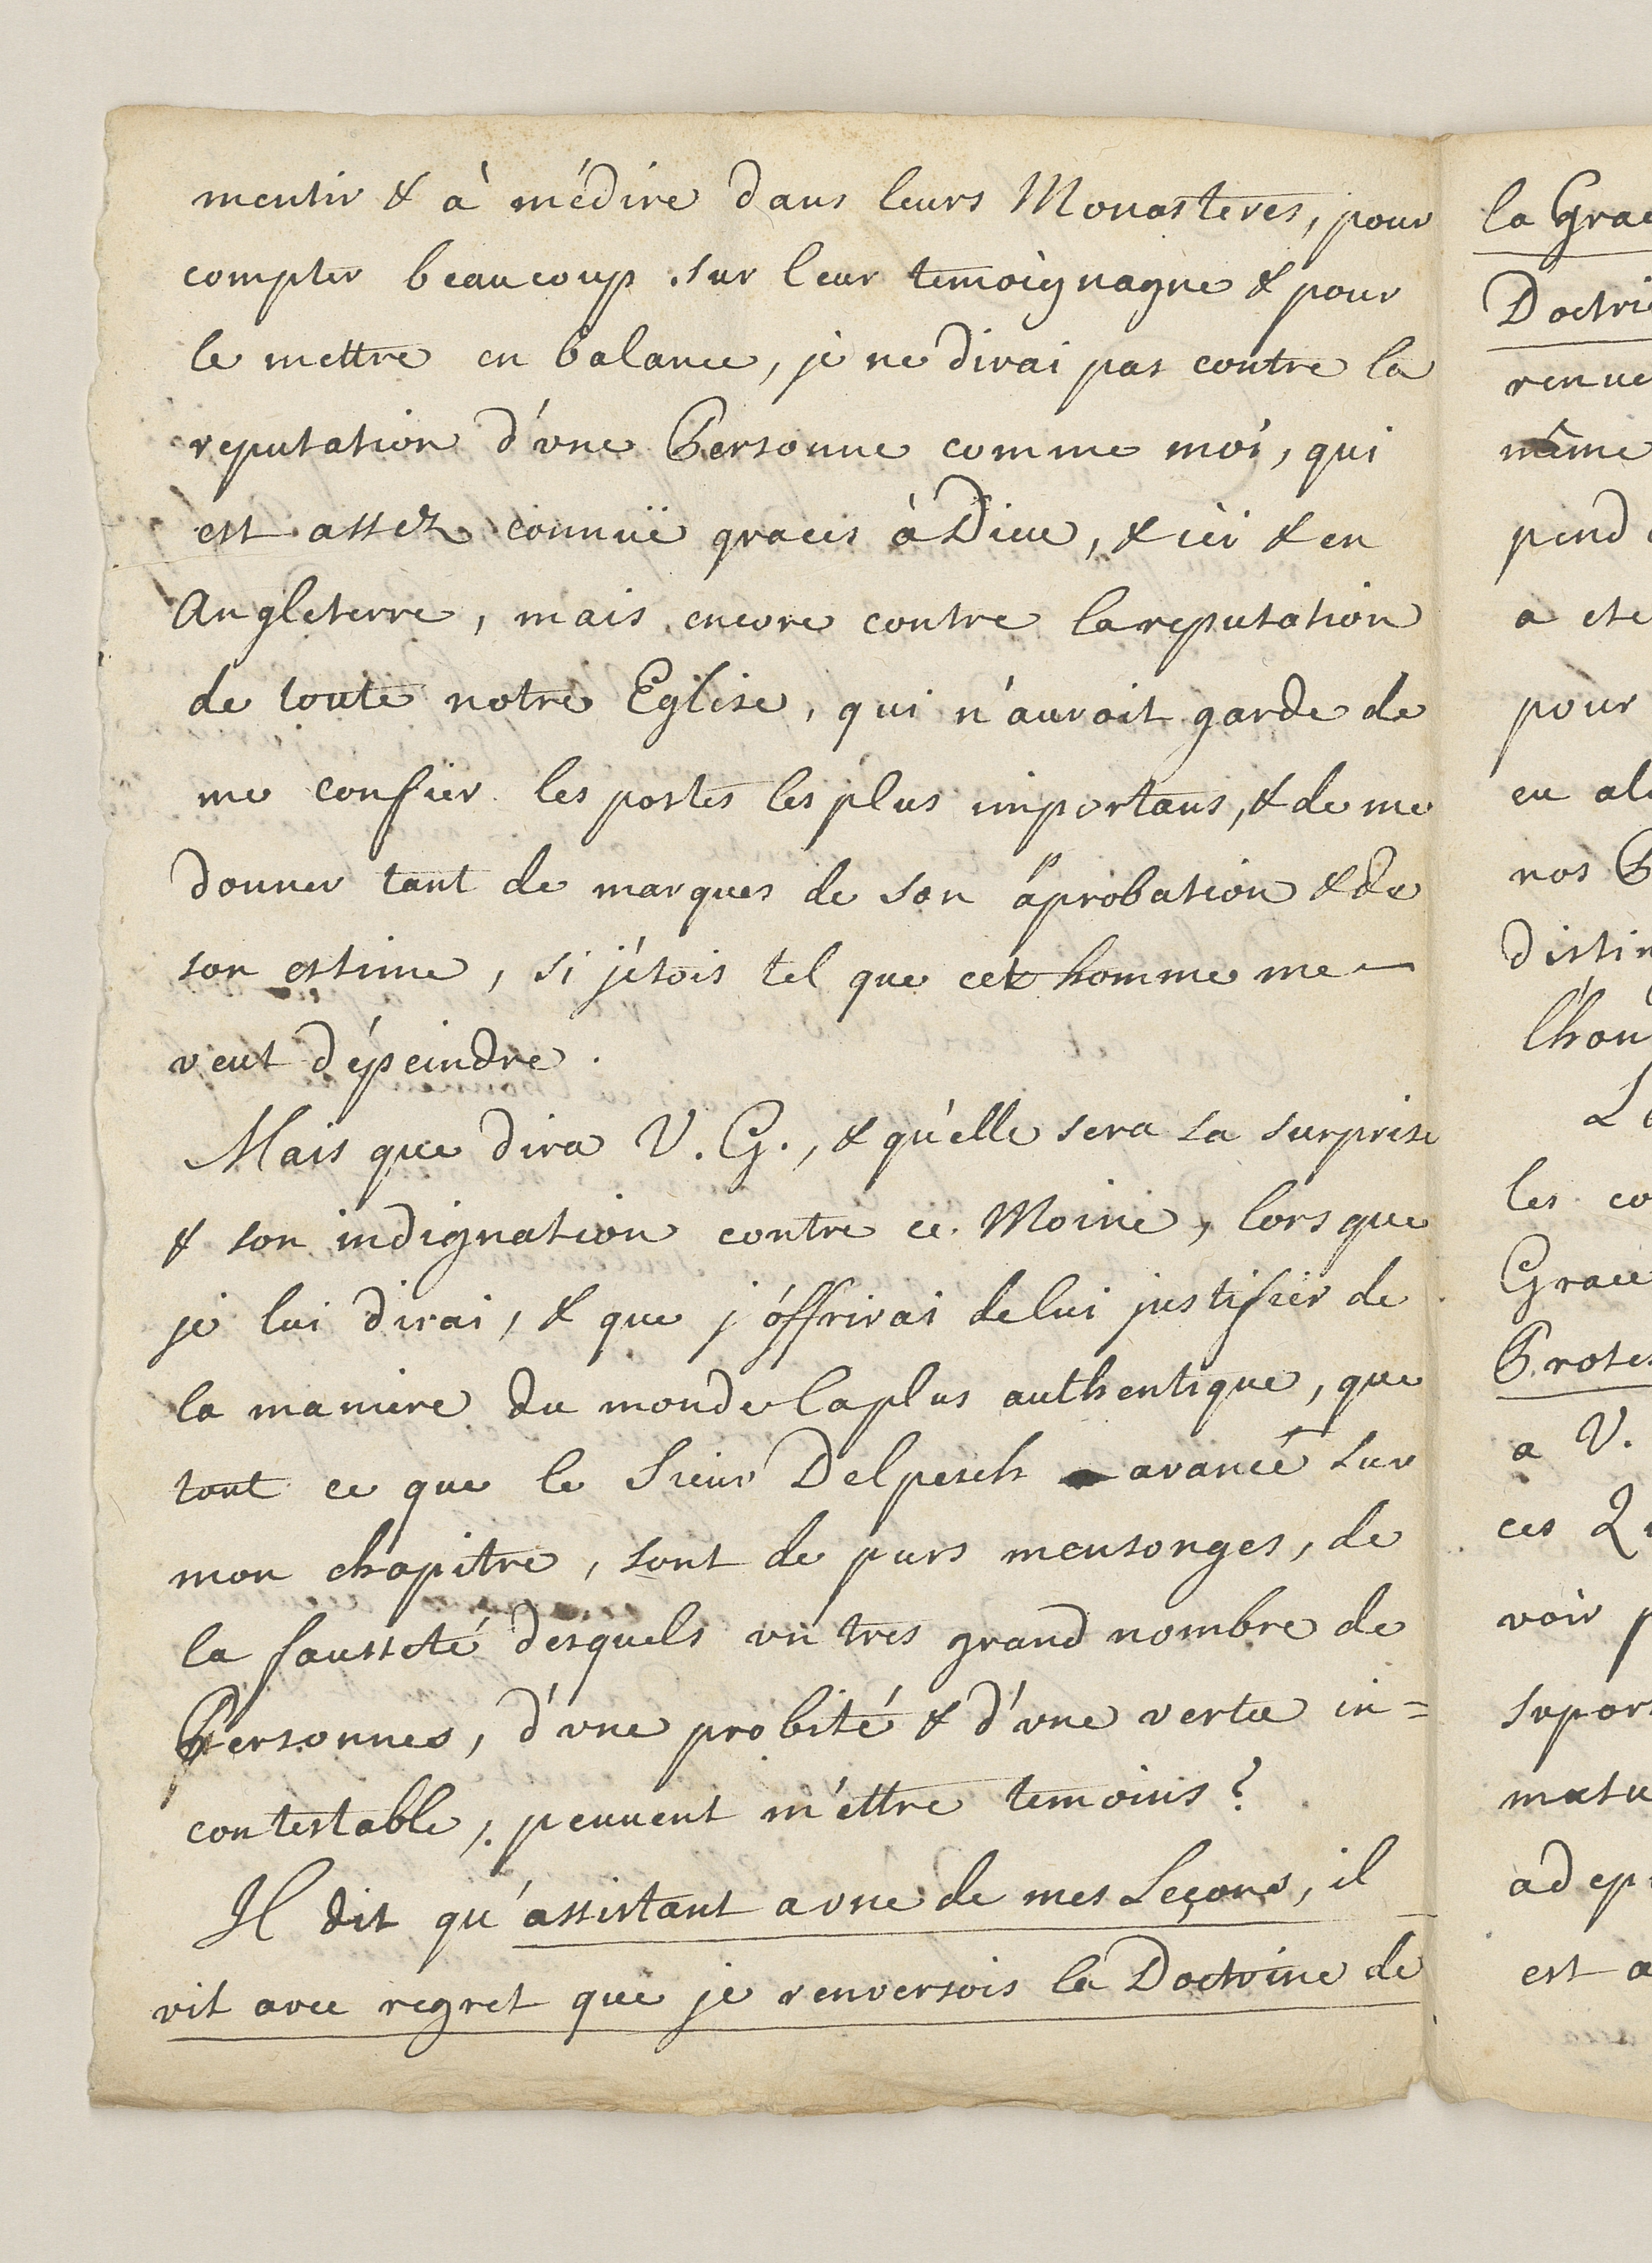 mentir & à médire dans leurs Monasteres, pour
compter beaucoup sur leur temoignagne & pour
le mettre en balance, je ne dirai pas contre la
reputation d'une Personne comme moi, qui
est assez connuë graces à Dieu, & ici & en
Angleterre, mais encore contre la reputation
de toute notre Eglise, qui n'auroit garde de
me confier les postes les plus importans, & de me
donner tant de marques de son aprobation & de
son estime, si j'étois tel que cet homme me
veut dépeindre.
Mais que dira V. G., & qu'elle sera sa surprise
& son indignation contre ce Moine, lorsque
je lui dirai, & que j'offrirai de lui justifier de
la maniere du monde la plus authentique, que
tout ce que le Sieur Delpesch avancé sur
mon chapitre, sont de purs mensonges, de
la fausseté desquels un tres grand nombre de
Personnes, d'une probité & d'une vertu in=
contestable, peuvent m'ettre temoins?
Il dit qu'assistant a une de mes Leçons, il
vit avec regret que je renversois la Doctrine de
la Grac
Doctri
renue
même
pend
a ete
pour
en al
nos P
distin
l'hon
L
les co
Grace
Protes
a V.
ces Q
voir p
supor
matu
adep
est a